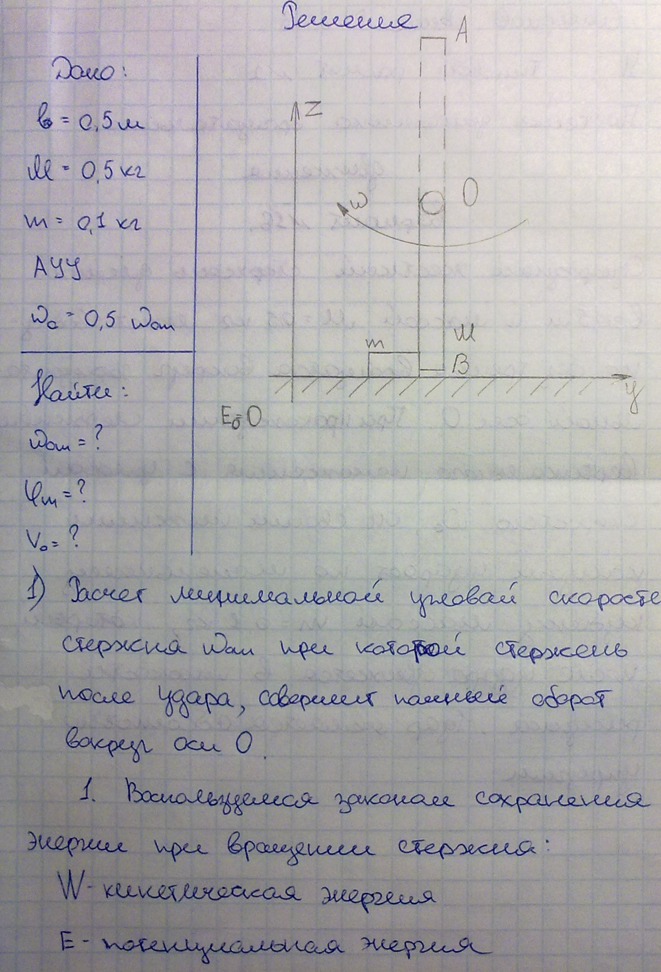 Решение
A
Дано:
Z
b = 0,5 м
M = 0,5 кг
ω
O
m = 0,1 кг
АУУ
ω₀ = 0,5 ω₀m
m
M
B
y
Найти:
E₀=0
ω₀m = ?
φm = ?
V₀ = ?
1) Расчет минимальной угловой скорости
стержня ω₀m при которой стержень
после удара, совершит полный оборот
вокруг оси О.
1. Воспользуемся законом сохранения
энергии при вращении стержня:
W - кинетическая энергия
E - потенциальная энергия